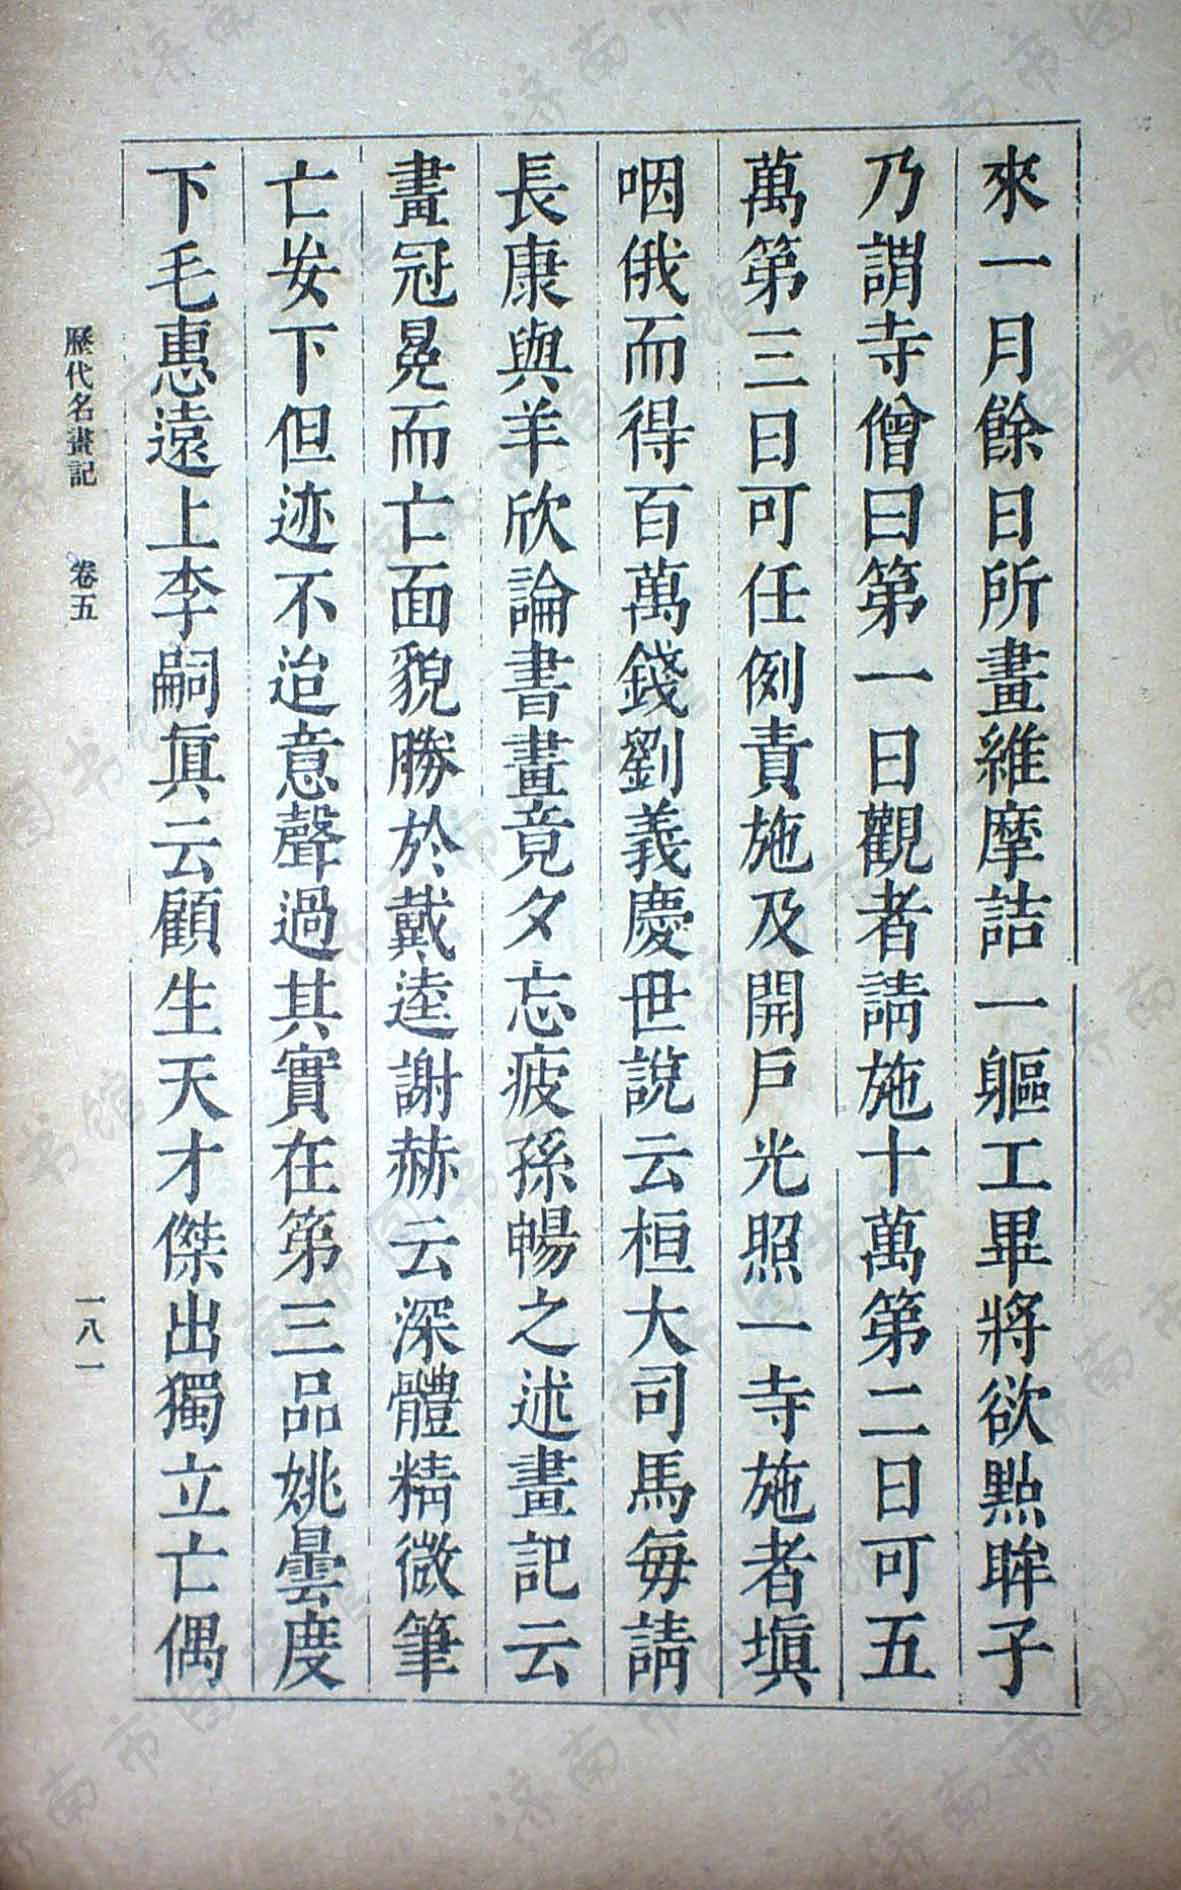 來一月餘日所畫維摩詰一軀工畢將欲㸃眸子
乃謂寺僧曰第一日觀者請施十萬第二日可五
萬第三日可任例責施及開戶光照一寺施者塡
咽俄而得百萬錢劉義慶世說云桓大司馬每請
長康與羊欣論書畫竟夕忘疲孫暢之述畫記云
畫冠冕而亡面貌勝於戴逵謝赫云深體精微筆
亡妄下但迹不迨意聲過其實在第三品姚曇度
下毛惠遠上李嗣真云顧生天才傑出獨立亡偶
歷代名畫記 卷五 一八一